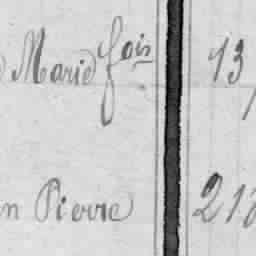 Marie fois 13
n Pierre 212